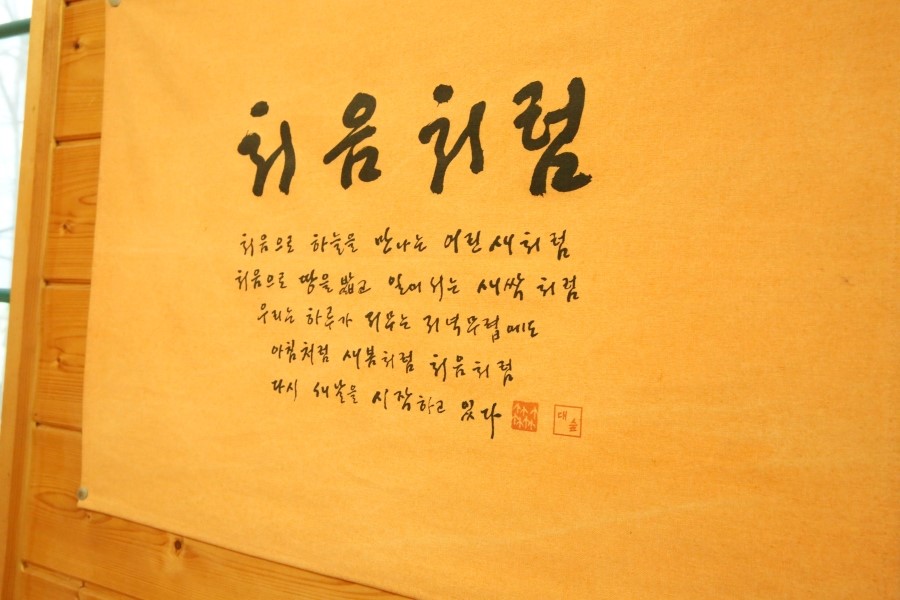 처음처럼
처음으로 하늘을 만나는 어린 새처럼
처음으로 땅을 밟고 일어서는 새싹처럼
우리는 하루가 저무는 저녁무렵에도
아침처럼 새봄처럼 처음처럼
다시 새날을 시작하고 있다
대숲